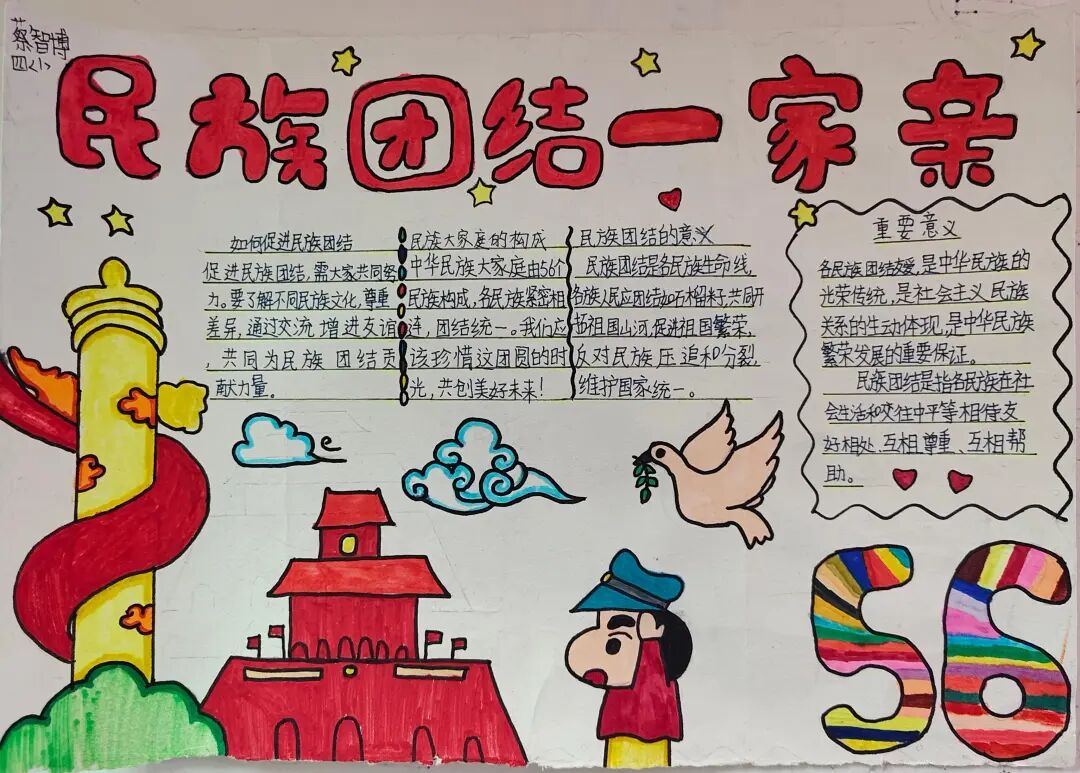 蔡智博
四<1>
民族团结一家亲
如何促进民族团结
促进民族团结,需大家共同努
力。要了解不同民族文化,尊重
差异,通过交流增进友谊
,共同为民族团结贡
献力量。
民族大家庭的构成
中华民族大家庭由56个
民族构成,各民族紧密相
连,团结统一。我们应
该珍惜这团圆的时
光,共创美好未来!
民族团结的意义
民族团结是各民族生命线,
各族人民应团结如石榴籽,共同开
拓祖国山河,促进祖国繁荣,
反对民族压迫和分裂
维护国家统一。
重要意义
各民族团结友爱,是中华民族的
光荣传统,是社会主义民族
关系的生动体现,是中华民族
繁荣发展的重要保证。
民族团结是指各民族在社
会生活和交往中平等相待友
好相处、互相尊重、互相帮
助。
56